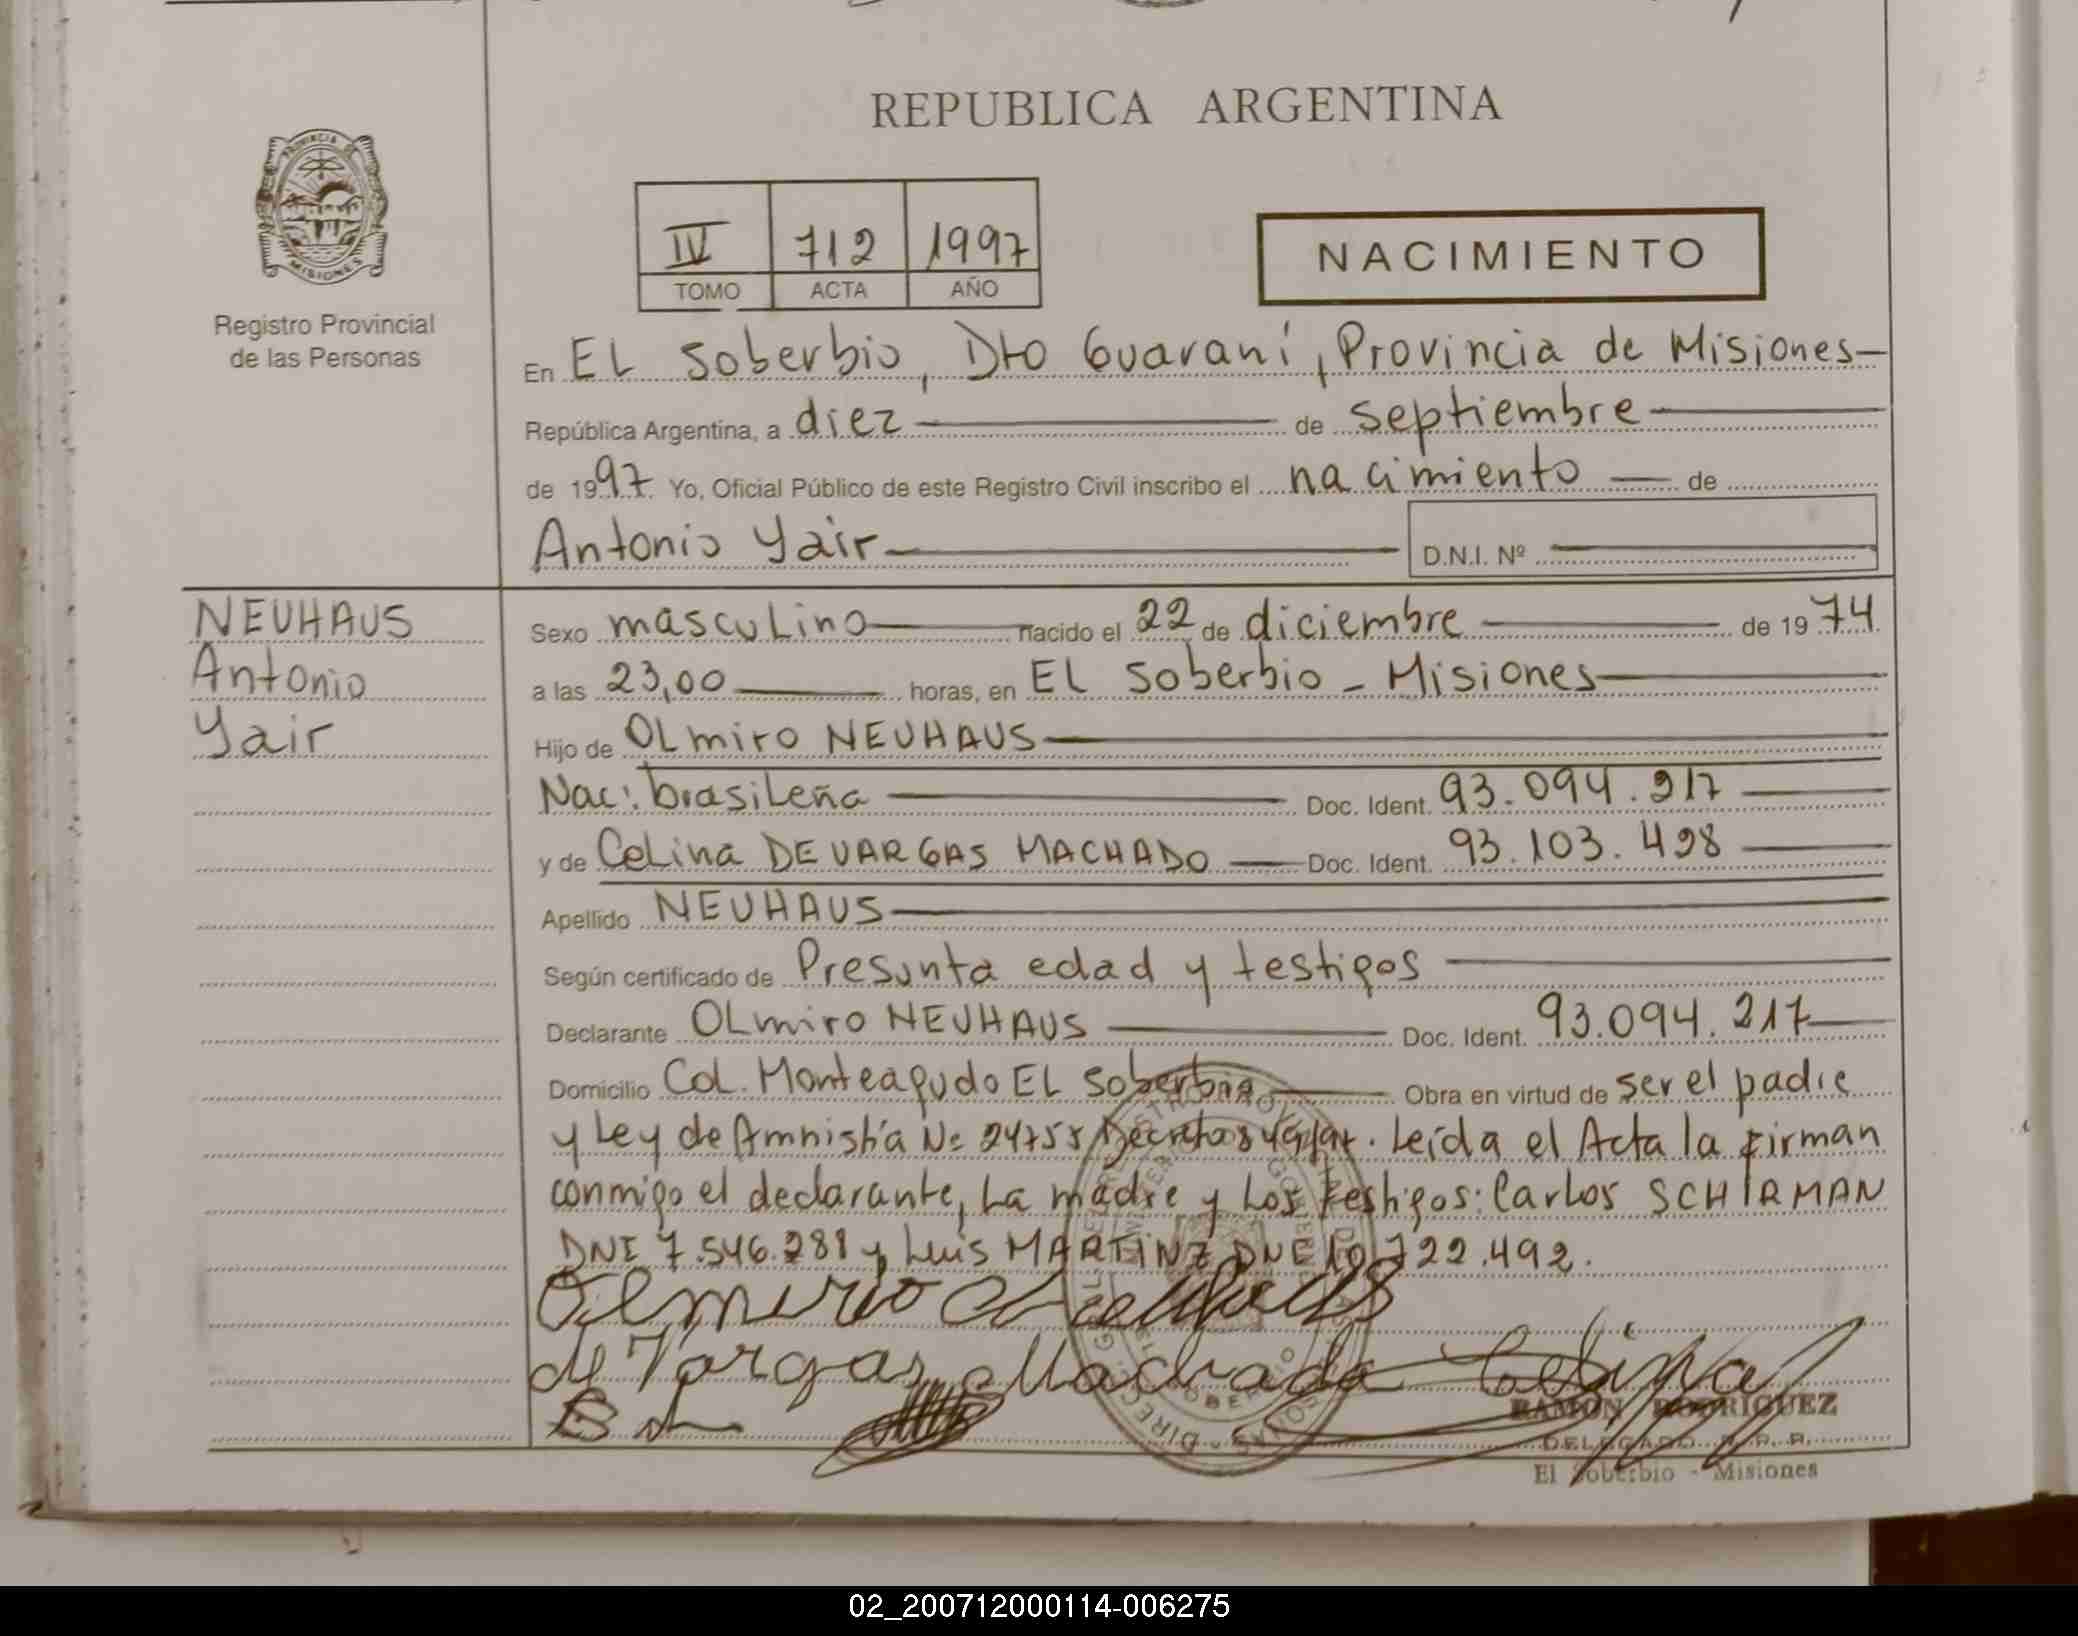 REPUBLICA ARGENTINA
PROVINCIA DE
MISIONES
Registro Provincial
de las Personas
IV 712 1997
TOMO ACTA AÑO
NACIMIENTO
En EL Soberbio, Dto Guaraní, Provincia de Misiones
República Argentina, a diez de septiembre
de 1997 Yo, Oficial Público de este Registro Civil inscribo el nacimiento de
Antonio Yair D.N.I. Nº
NEUHAUS
Antonio
Yair
Sexo masculino nacido el 22 de diciembre de 1974
a las 23,00 horas, en EL Soberbio - Misiones
Hijo de OLmiro NEUHAUS
Nac: brasileña Doc. Ident. 93.094.217
y de Celina DE VARGAS MACHADO Doc. Ident. 93.103.498
Apellido NEUHAUS
Según certificado de Presunta edad y testigos
Declarante OLmiro NEUHAUS Doc. Ident. 93.094.217
Domicilio Col. Monteagudo EL Soberbio Obra en virtud de ser el padre
y Ley de Amnistía Nº 24755 Leída el Acta la firman
conmigo el declarante, La madre y Los testigos: Carlos SCHIRMAN
DNI 7.546.281 y Luis MARTINZ DNI 10.722.492.
Olmiro Neuhaus
de Vargas Machado Celina
RAMON RODRIGUEZ
DELEGADO R.P.P.
El Soberbio - Misiones
02_200712000114-006275